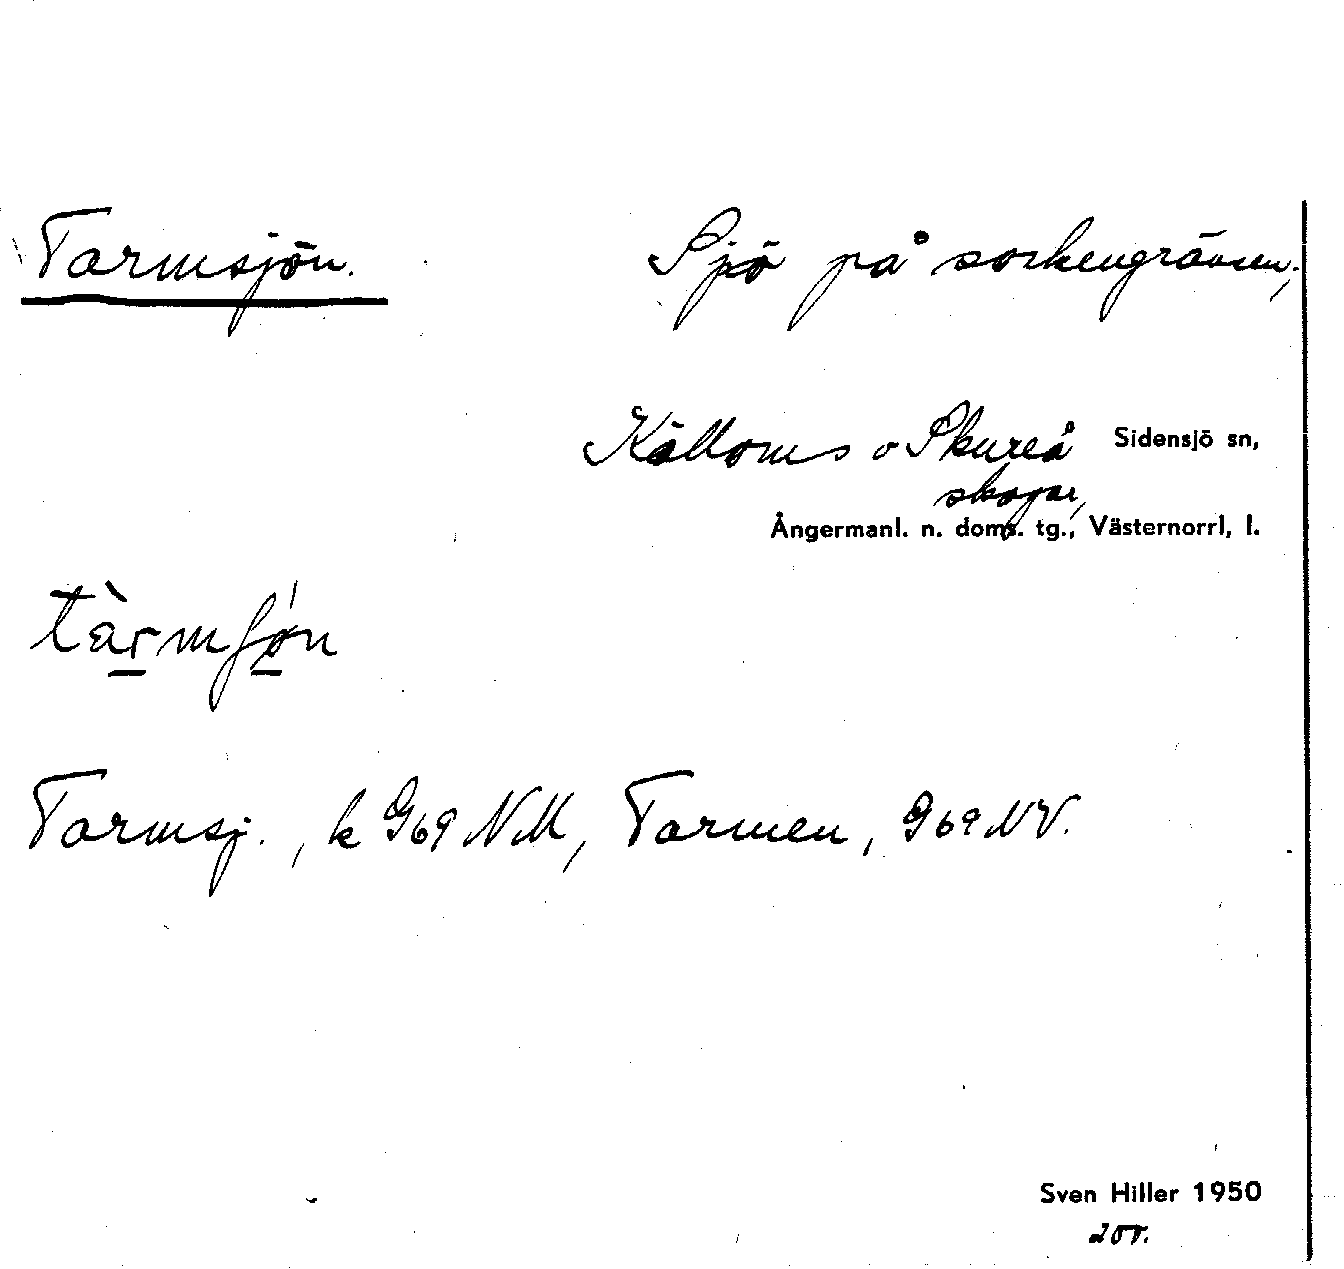 Tarmsjön. Sjö på sockengränsen,
Källoms o Skureå Sidensjö sn,
skogar,
Ångermanl. n. doms. tg., Västernorrl, l.
tàrmʃø̀n
Tarmsj., k G69 NM, Tarmen, G69 NV.
Sven Hiller 1950